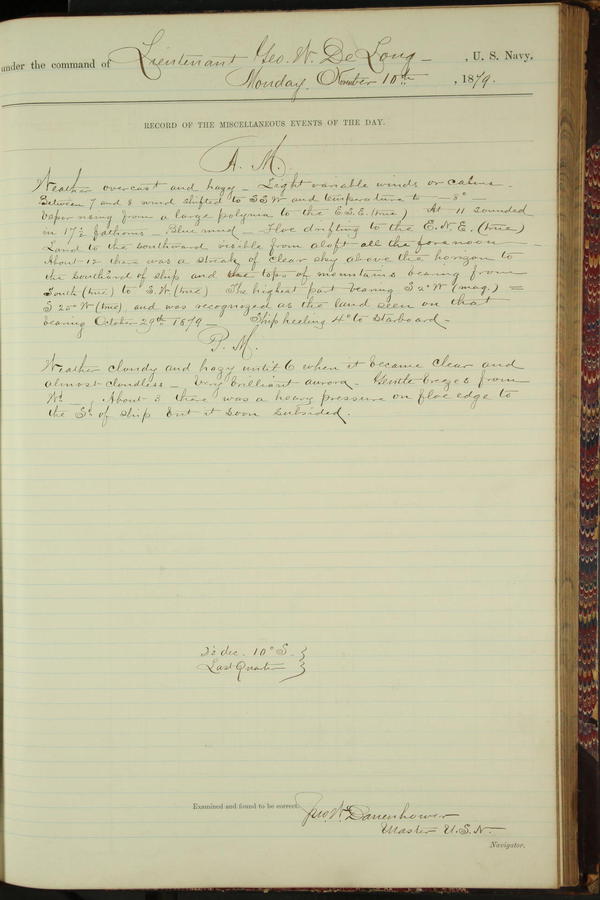 under the command of Lieutenant Geo. W. De Long, U. S. Navy,
Monday, November 10th, 1879.
RECORD OF THE MISCELLANEOUS EVENTS OF THE DAY.
A. M.
Weather overcast and hazy - Light variable winds or calms.
Between 7 and 8 wind shifted to SSW and temperature to - 8°
Vapor rising from a large polynia to the E.S.E. (true) At 11 sounded
in 17½ fathoms - Blue mud - Floe drifting to the E.N.E. (true)
Land to the southward visible from aloft all the forenoon -
About 12 there was a streak of clear sky above the horizon to
the southard of ship and the tops of mountains bearing from
South (true) to S.W (true) The highest part bearing S 2° W (mag.) =
S 20° W (true), and was recognized as the land seen on that
bearing October 29th 1879 - Ship heeling 4° to Starboard -
P. M.
Weather cloudy and hazy until 6 when it became clear and
almost cloudless - Very brilliant aurora - Gentle breezes from
About 3 there was a heavy pressure on floe edge to
the Sd of ship but it soon subsided.
dec. 10° S.
Last Quarter
Examined and found to be correct.
Jno. W. Danenhower
Master U.S.N.
Navigator.